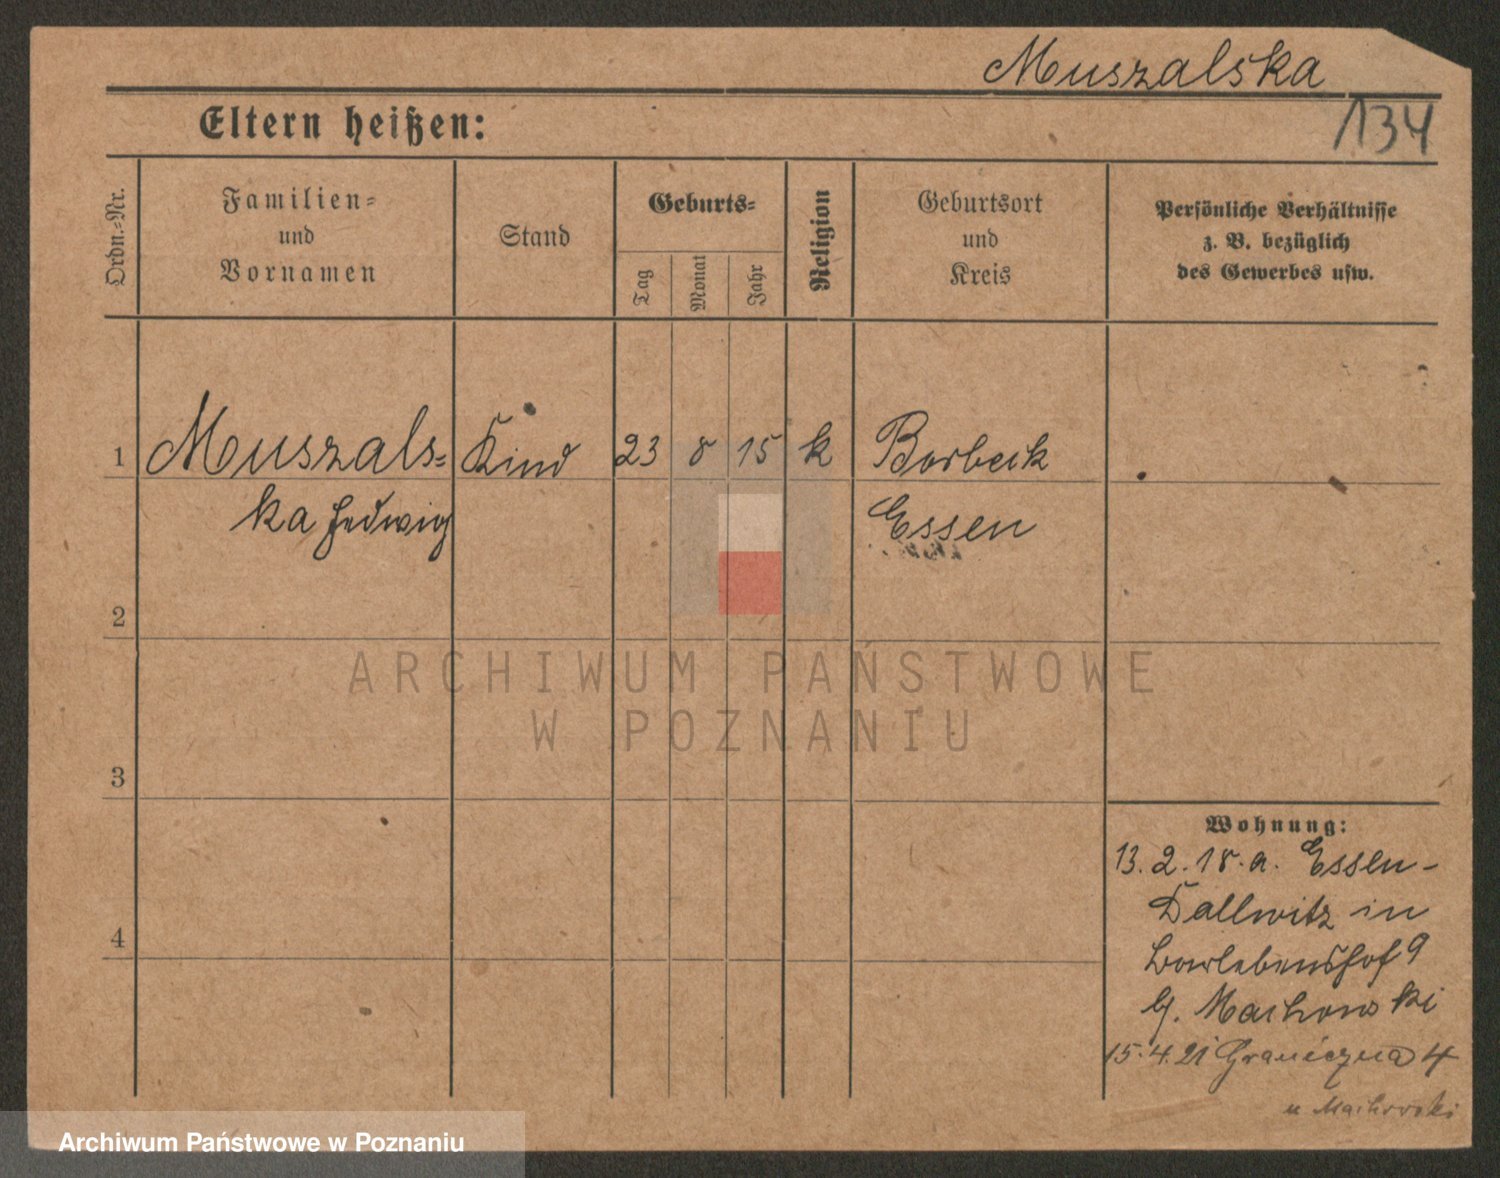 Muszalska
134
Eltern heißen:
Ordn.-Nr.
Familien-
und
Vornamen
Stand
Geburts-
Tag
Monat
Jahr
Religion
Geburtsort
und
Kreis
Persönliche Verhältnisse
z. B. bezüglich
des Gewerbes usw.
1 Muszals- Kind 23 8 15 k Borbeck
ka Hedwig Essen
2
ARCHIWUM PAŃSTWOWE
W POZNANIU
3
Wohnung:
13.2.18. a. Essen-
Dallwitz in
hof 9
b. Machowski
4
15.4.21 Graniczna 4
u Machowski
Archiwum Państwowe w Poznaniu